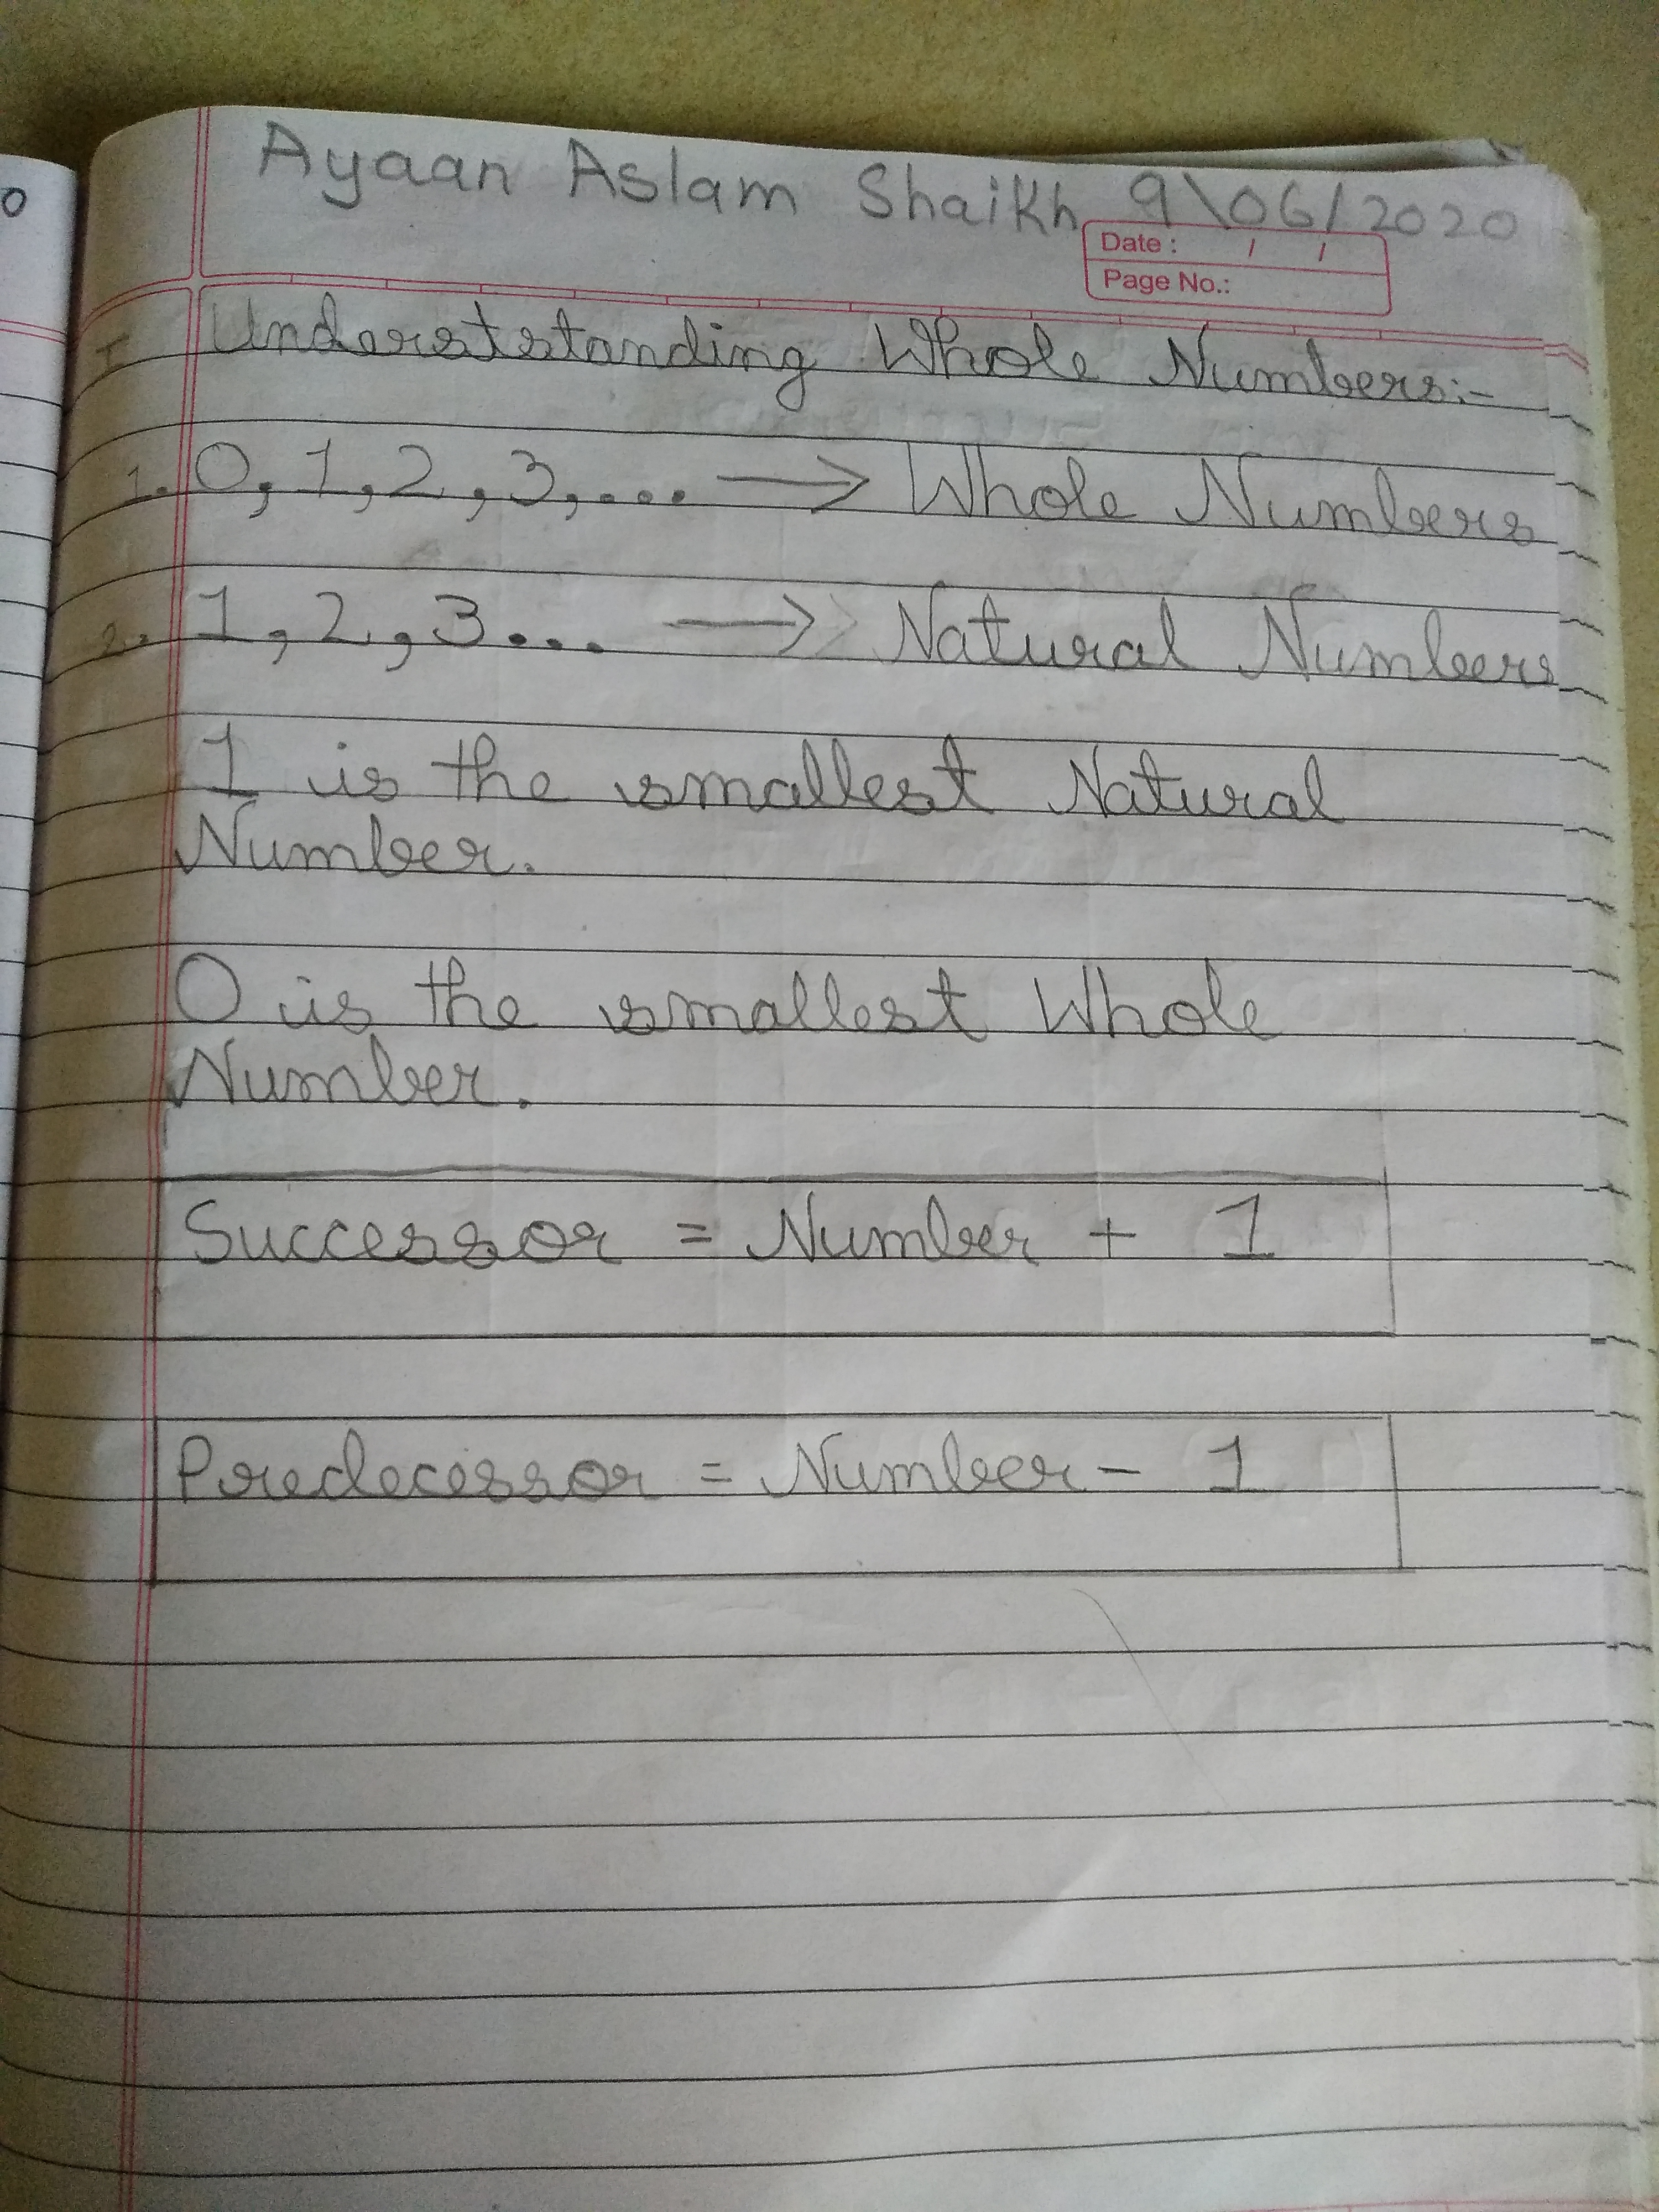 0
Ayaan Aslam Shaikh 9\06/2020
Date : / /
Page No.:
I Underststanding Whole Numbers:-
1. 0, 1, 2, 3, ... → Whole Numbers
2. 1, 2, 3... → Natural Numbers
1 is the smallest Natural
Number.
0 is the smallest Whole
Number.
Successor = Number + 1
Predecessor = Number - 1